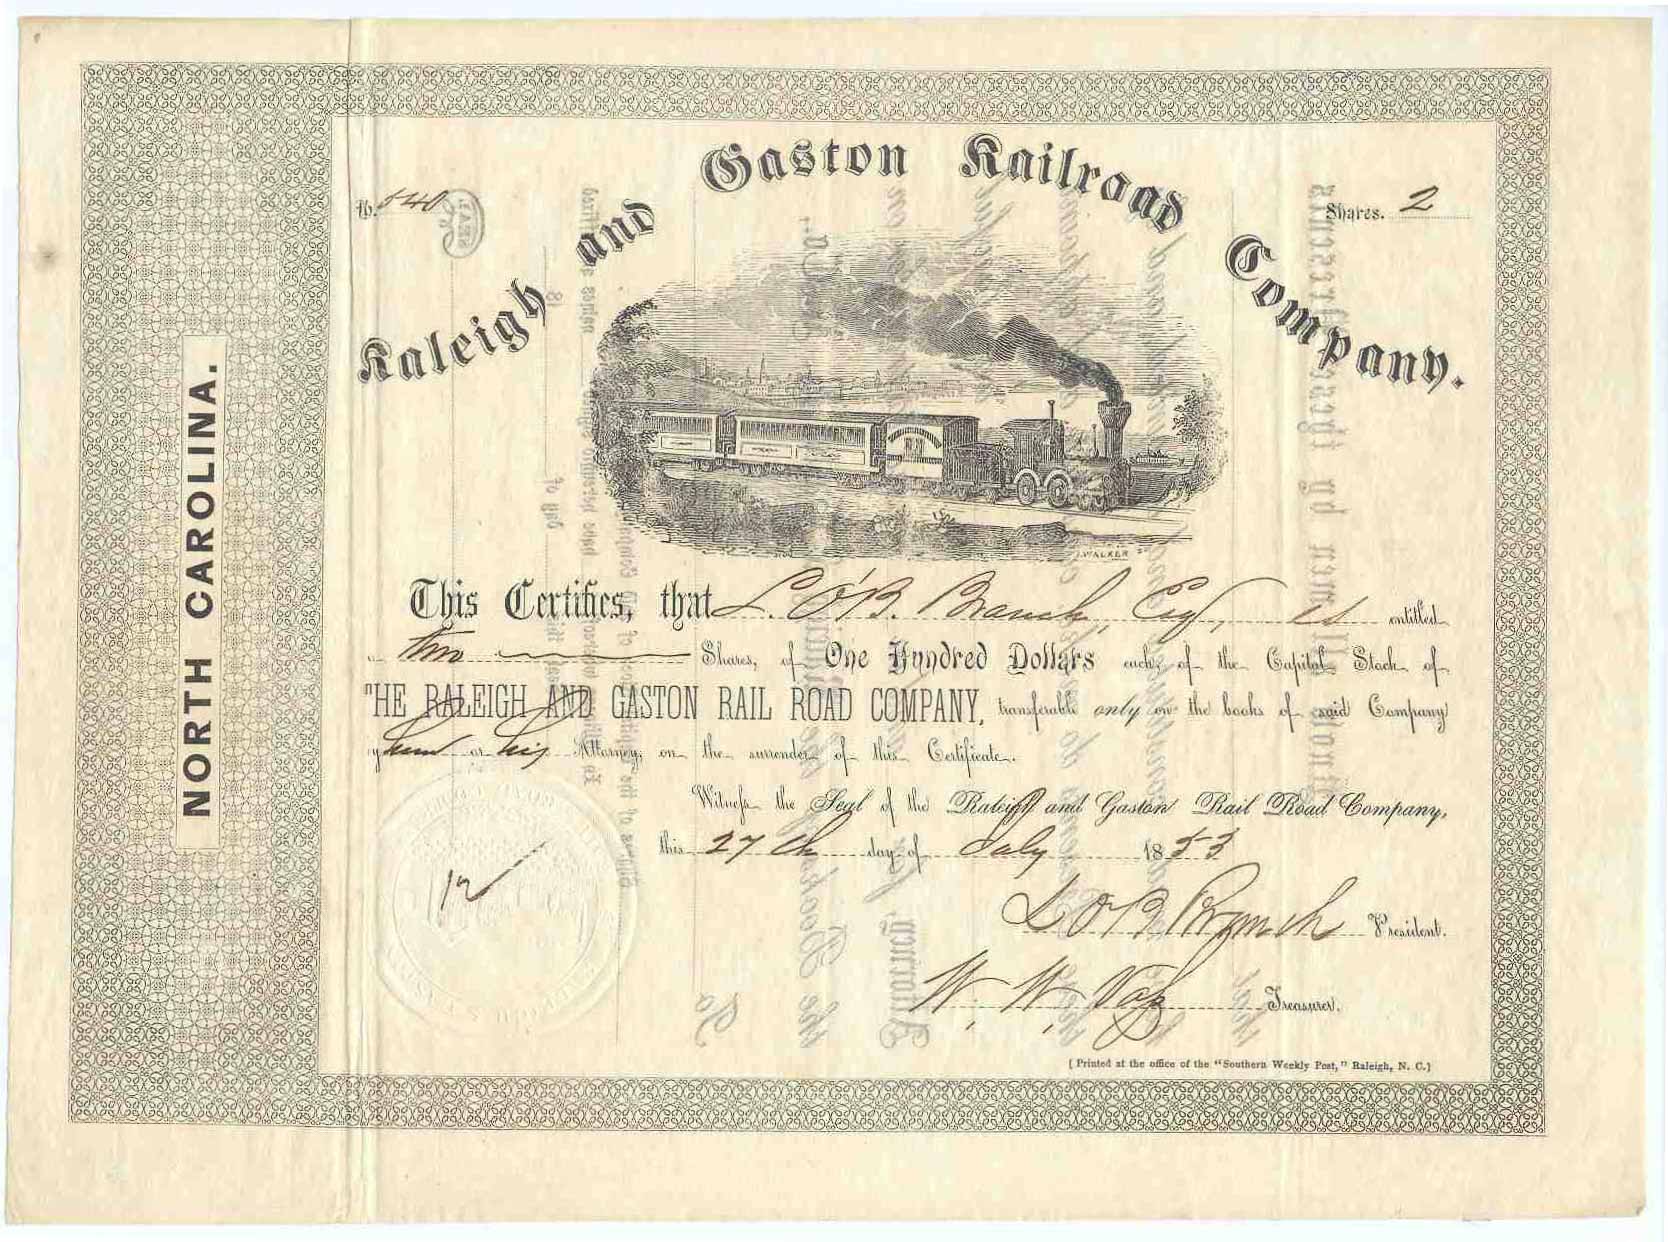 Raleigh and Gaston Railroad Company.
No. 540
Shares. 2
NORTH CAROLINA.
J. WALKER
This Certifies, that L. O'B. Branch, Esq, is entitled
two Shares, of One Hundred Dollars each, of the Capital Stock of
HE RALEIGH AND GASTON RAIL ROAD COMPANY, transferable only on the books of said Company
y him or his Attorney, on the surrender of this Certificate.
Witness the Seal of the Raleigh and Gaston Rail Road Company,
this 27th day of July 1853
L O'B Branch President.
W. W. Vass Treasurer.
[Printed at the office of the "Southern Weekly Post," Raleigh, N. C.]
SEAL